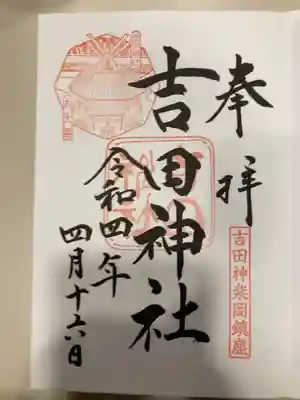 奉拝
吉田神楽岡鎮座
吉田神社
令和四年
四月十六日